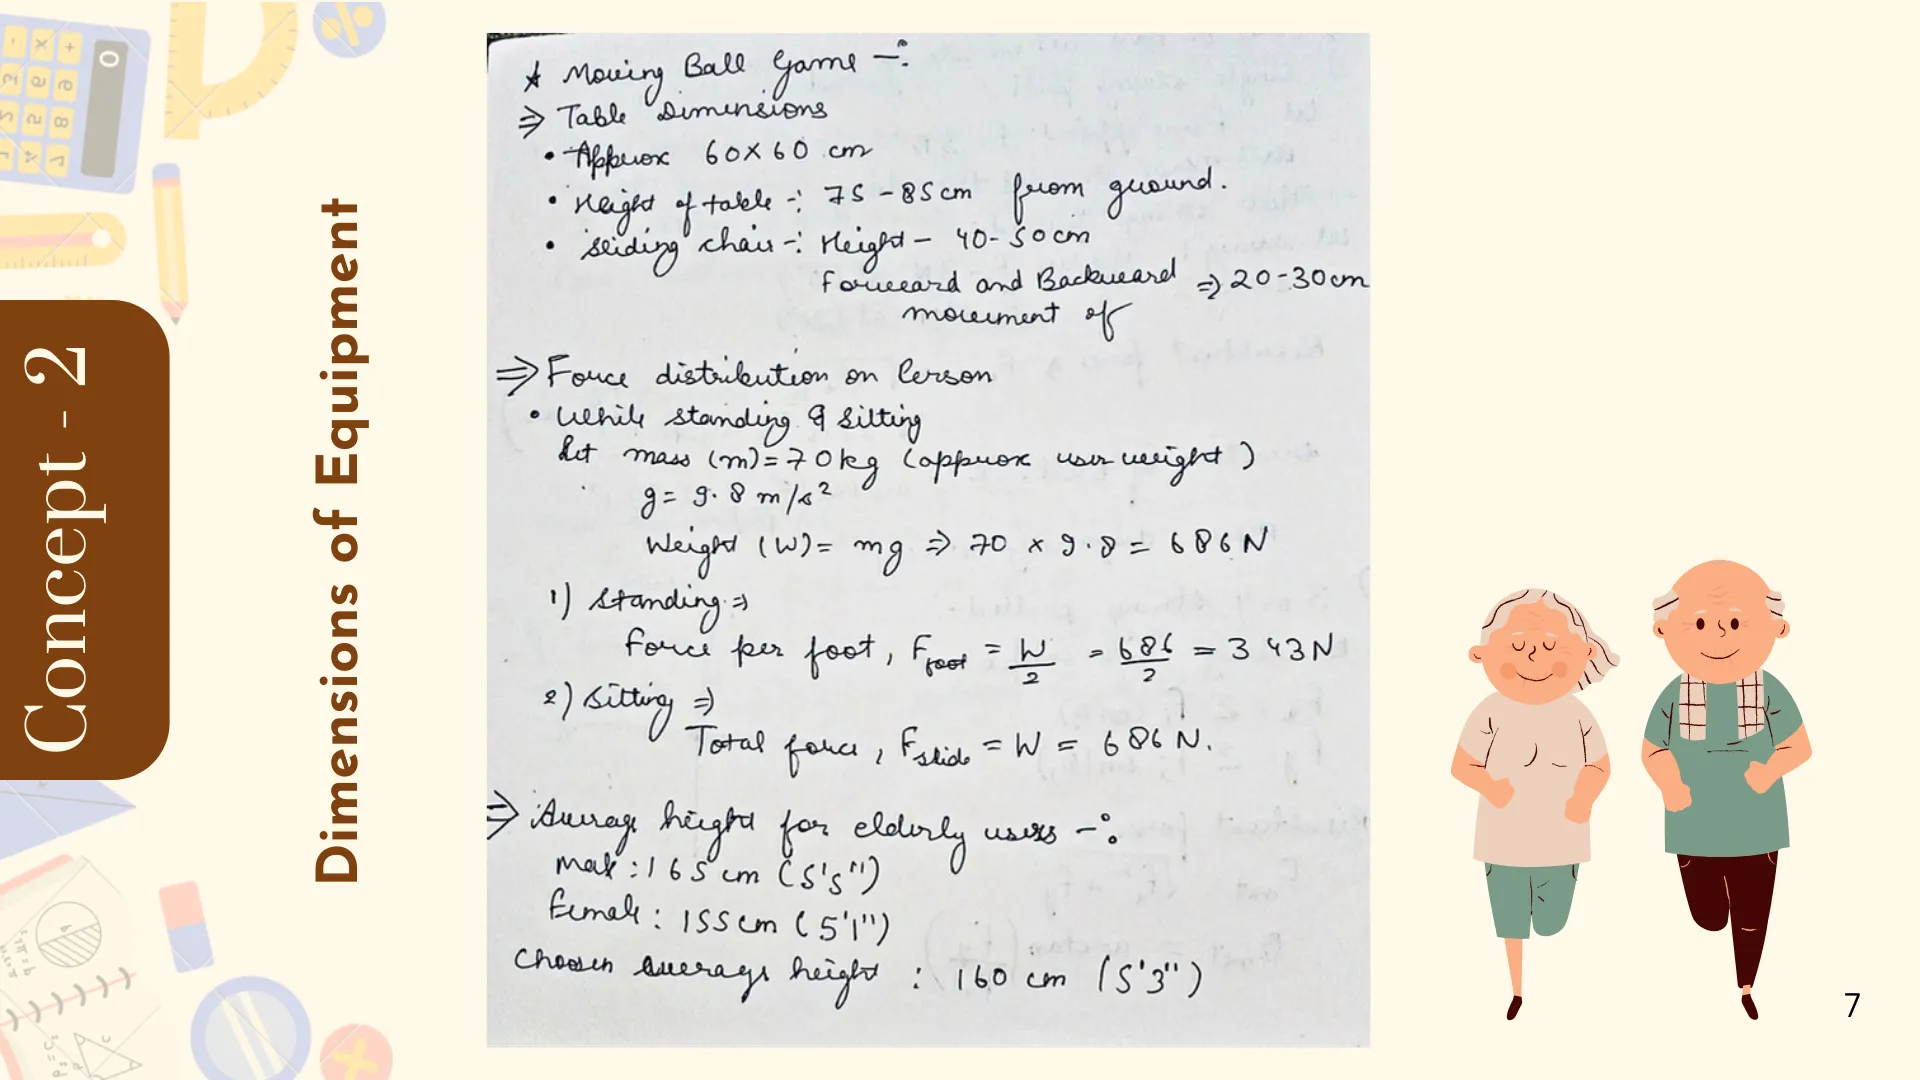 Concept - 2
Dimensions of Equipment
★ Moving Ball Game -:
⇒ Table Dimensions
• Approx 60X60 cm
• Height of table -: 75-85cm from ground.
• Sliding chair -: Height - 40-50cm
Forward and Backward ⇒ 20-30cm
movement of
⇒ Force distribution on Person
• While standing & Sitting
Let mass (m)=70kg (approx user weight)
g= 9.8 m/s²
Weight (W)= mg ⇒ 70 x 9.8 = 686N
1) Standing ⇒
Force per foot, F foot = W/2 = 686/2 = 343N
2) Sitting ⇒
Total force, F slide = W = 686 N.
⇒ Average height for elderly users -:
Male : 165 cm (5'5")
Female : 155cm (5'1")
Choosen average height : 160 cm (5'3")
7